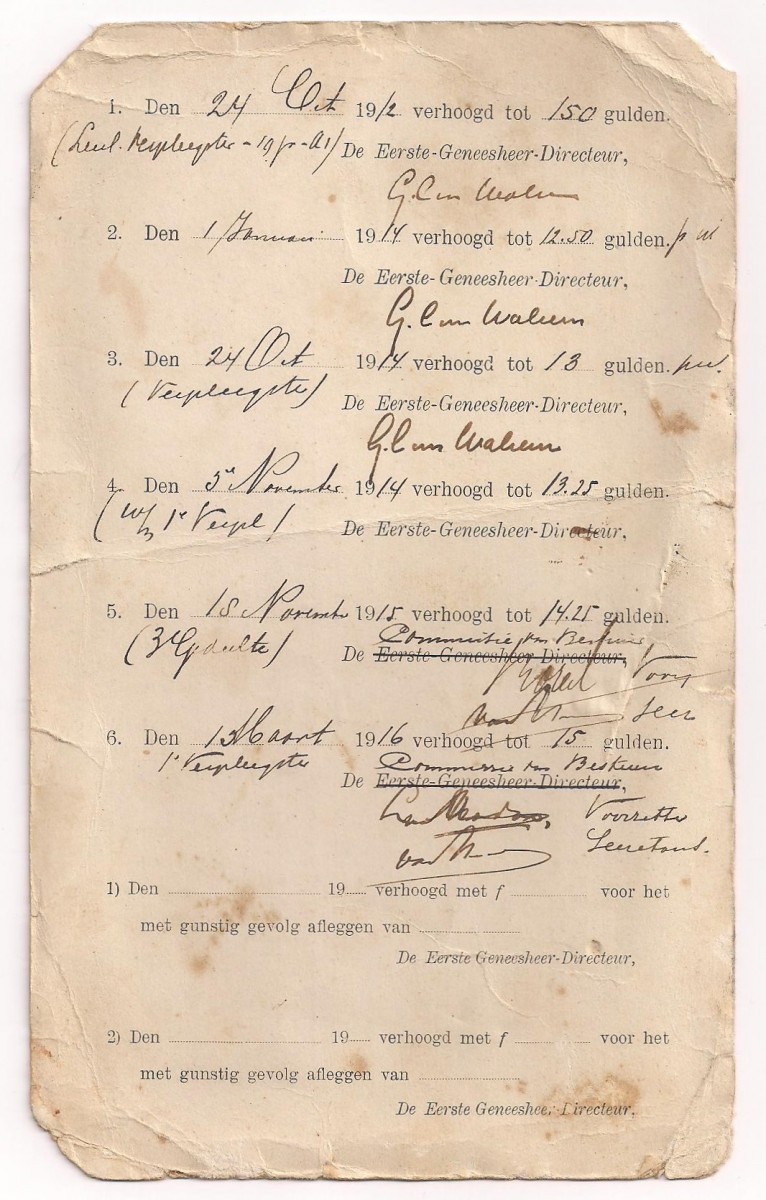 1. Den 24 Oct 1912 verhoogd tot 150 gulden.
(Leerl. Verpleegster - 19 - A1) De Eerste-Geneesheer-Directeur,
G. C. van Walsem
2. Den 1 Januari 1914 verhoogd tot 12.50 gulden.
De Eerste-Geneesheer-Directeur,
G. C. van Walsem
3. Den 24 Oct 1914 verhoogd tot 13 gulden.
(Verpleegster) De Eerste-Geneesheer-Directeur,
G. C. van Walsem
4. Den 5e November 1914 verhoogd tot 13.25 gulden.
(w/ 1e Verpl) De Eerste-Geneesheer-Directeur,
5. Den 18 November 1915 verhoogd tot 14.25 gulden.
Commissie van Bestuur
(3e Gedeelte) De Eerste-Geneesheer-Directeur,
Voorz
Secr
6. Den 1 Maart 1916 verhoogd tot 15 gulden.
1e Verpleegster Commissie van Bestuur
De Eerste-Geneesheer-Directeur,
Voorzitter
Secretaris.
1) Den 19 verhoogd met f voor het
met gunstig gevolg afleggen van
De Eerste Geneesheer-Directeur,
2) Den 19 verhoogd met f voor het
met gunstig gevolg afleggen van
De Eerste Geneesheer-Directeur,